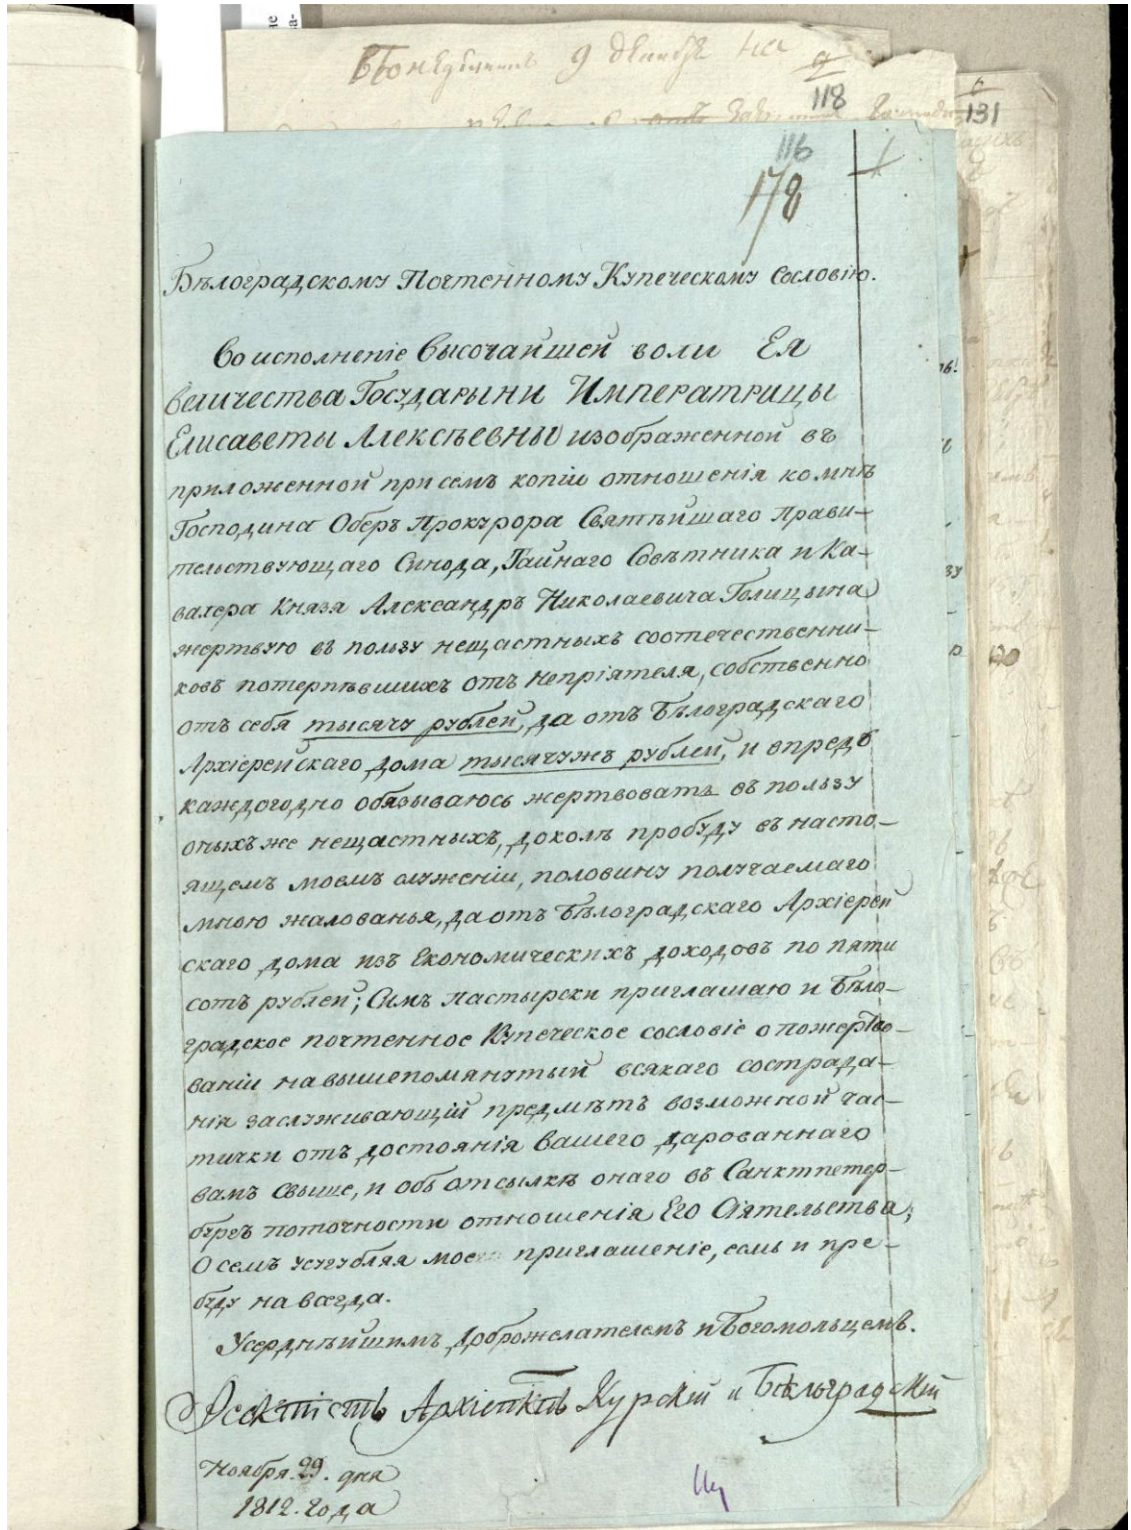 118
131
116
178
Бѣлоградскому Почтенному Купеческому Сословію.
Во исполненіе Высочайшей воли Ея
Величества Государыни Императрицы
Елисаветы Алексѣевны изображенной въ
приложенной при семъ копіи отношенія ко мнѣ
Господина Оберъ Прокурора Святѣйшаго Прави-
тельствующаго Синода, Тайнаго Совѣтника и Ка-
валера Князя Александръ Николаевича Голицына
жертвую въ пользу нещастныхъ соотечественни-
ковъ потерпѣвшихъ отъ непріятеля, собственно
отъ себя тысячу рублей, да отъ Бѣлоградскаго
Архіерейскаго дома тысячужъ рублей, и впредь
каждогодно обязываюсь жертвовать въ пользу
оныхъ же нещастныхъ, доколѣ пробуду въ насто-
ящемъ моемъ служеніи, половину получаемаго
мною жалованья, да отъ Бѣлоградскаго Архіерей
скаго дома изъ Економическихъ доходовъ по пяти
сотъ рублей; Симъ пастырски приглашаю и Бѣло-
градское почтенное Купеческое сословіе о пожертво-
ваніи на вышепомянутый всякаго сострада-
нія заслуживающій предмѣтъ возможной час-
тички отъ достоянія вашего дарованнаго
вамъ свыше, и объ отсылкѣ онаго въ Санктпетер-
бургъ по точности отношенія Его Сіятельства;
О семъ усугубляя мое приглашеніе, есмь и пре-
буду на всегда.
Усерднѣйшимъ Доброжелателемъ и Богомольцемъ.
Ѳеоктистъ Архіепкпъ Курскій и Бѣлградскій
Ноября 29. дня
1812. Года